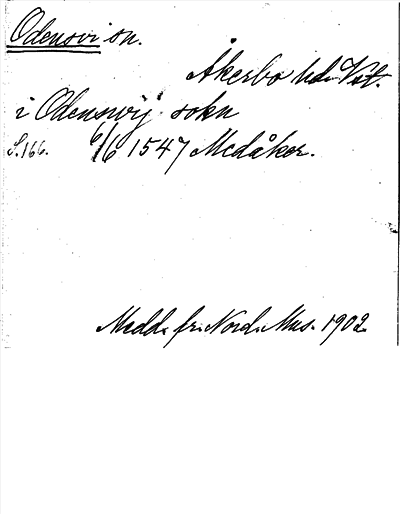 Odensvi sn.
Åkerbo hd. Vstm.
i Odenswij sokn
S. 166. 6/6 1547 Medåker.
Medd. fr. Nord. Mus. 1902